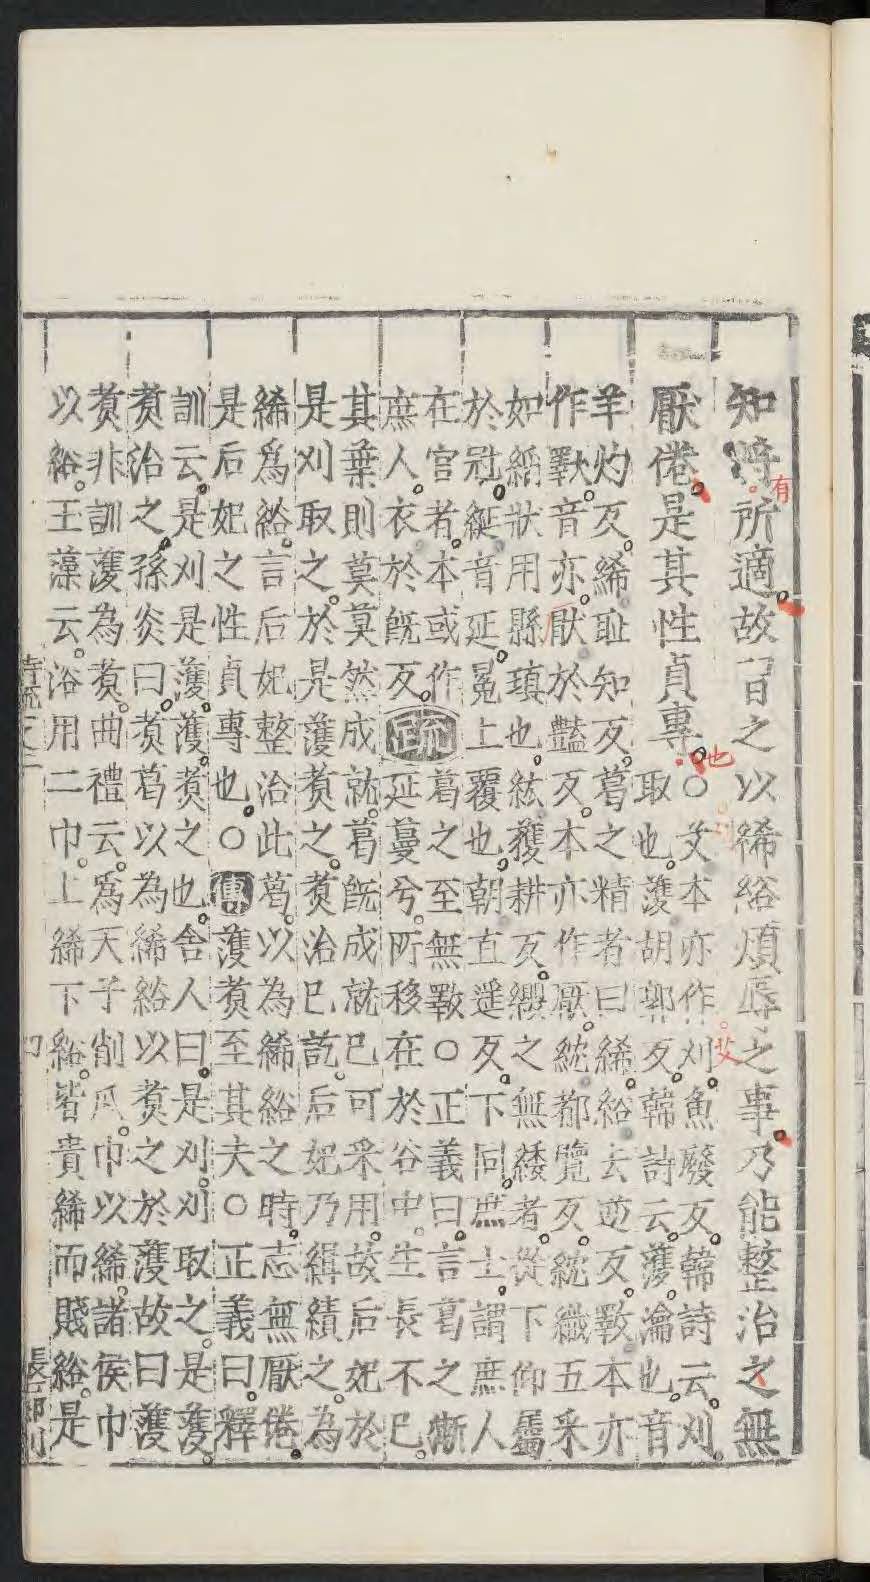 知將所適故習之以絺綌煩辱之事乃能整治之無
有
厭倦是其性貞專○
也
艾本亦作刈魚廢反韓詩云刈
艾
取也濩胡郭反韓詩云濩瀹也音
羊灼反絺恥知反葛之精者曰絺綌去逆反斁本亦
作斁音亦厭於豔反本亦作厭紞都覽反紞織五采
如絹狀用縣瑱也紘獲耕反纓之無緌者從下仰屬
於冠綖音延冕上覆也朝直遥反下同庶士謂庶人
在官者本或作
庶人衣於既反
疏
葛之至無斁○正義曰言葛之漸
延蔓兮所移在於谷中生長不已
其葉則莫莫然成就葛既成就已可采用故后妃於
是刈取之於是濩煑之煑治已訖后妃乃緝績之為
絺爲綌言后妃整治此葛以為絺綌之時志無厭倦
是后妃之性貞專也○傳濩煑至其夫○正義曰釋
訓云是刈是濩濩煑之也舍人曰是刈刈取之是濩
煑治之孫炎曰煑葛以為絺綌以煑之於濩故曰濩
煑非訓濩為煑曲禮云爲天子削瓜巾以絺諸侯巾
以綌玉藻云浴用二巾上絺下綌皆貴絺而賤綌是